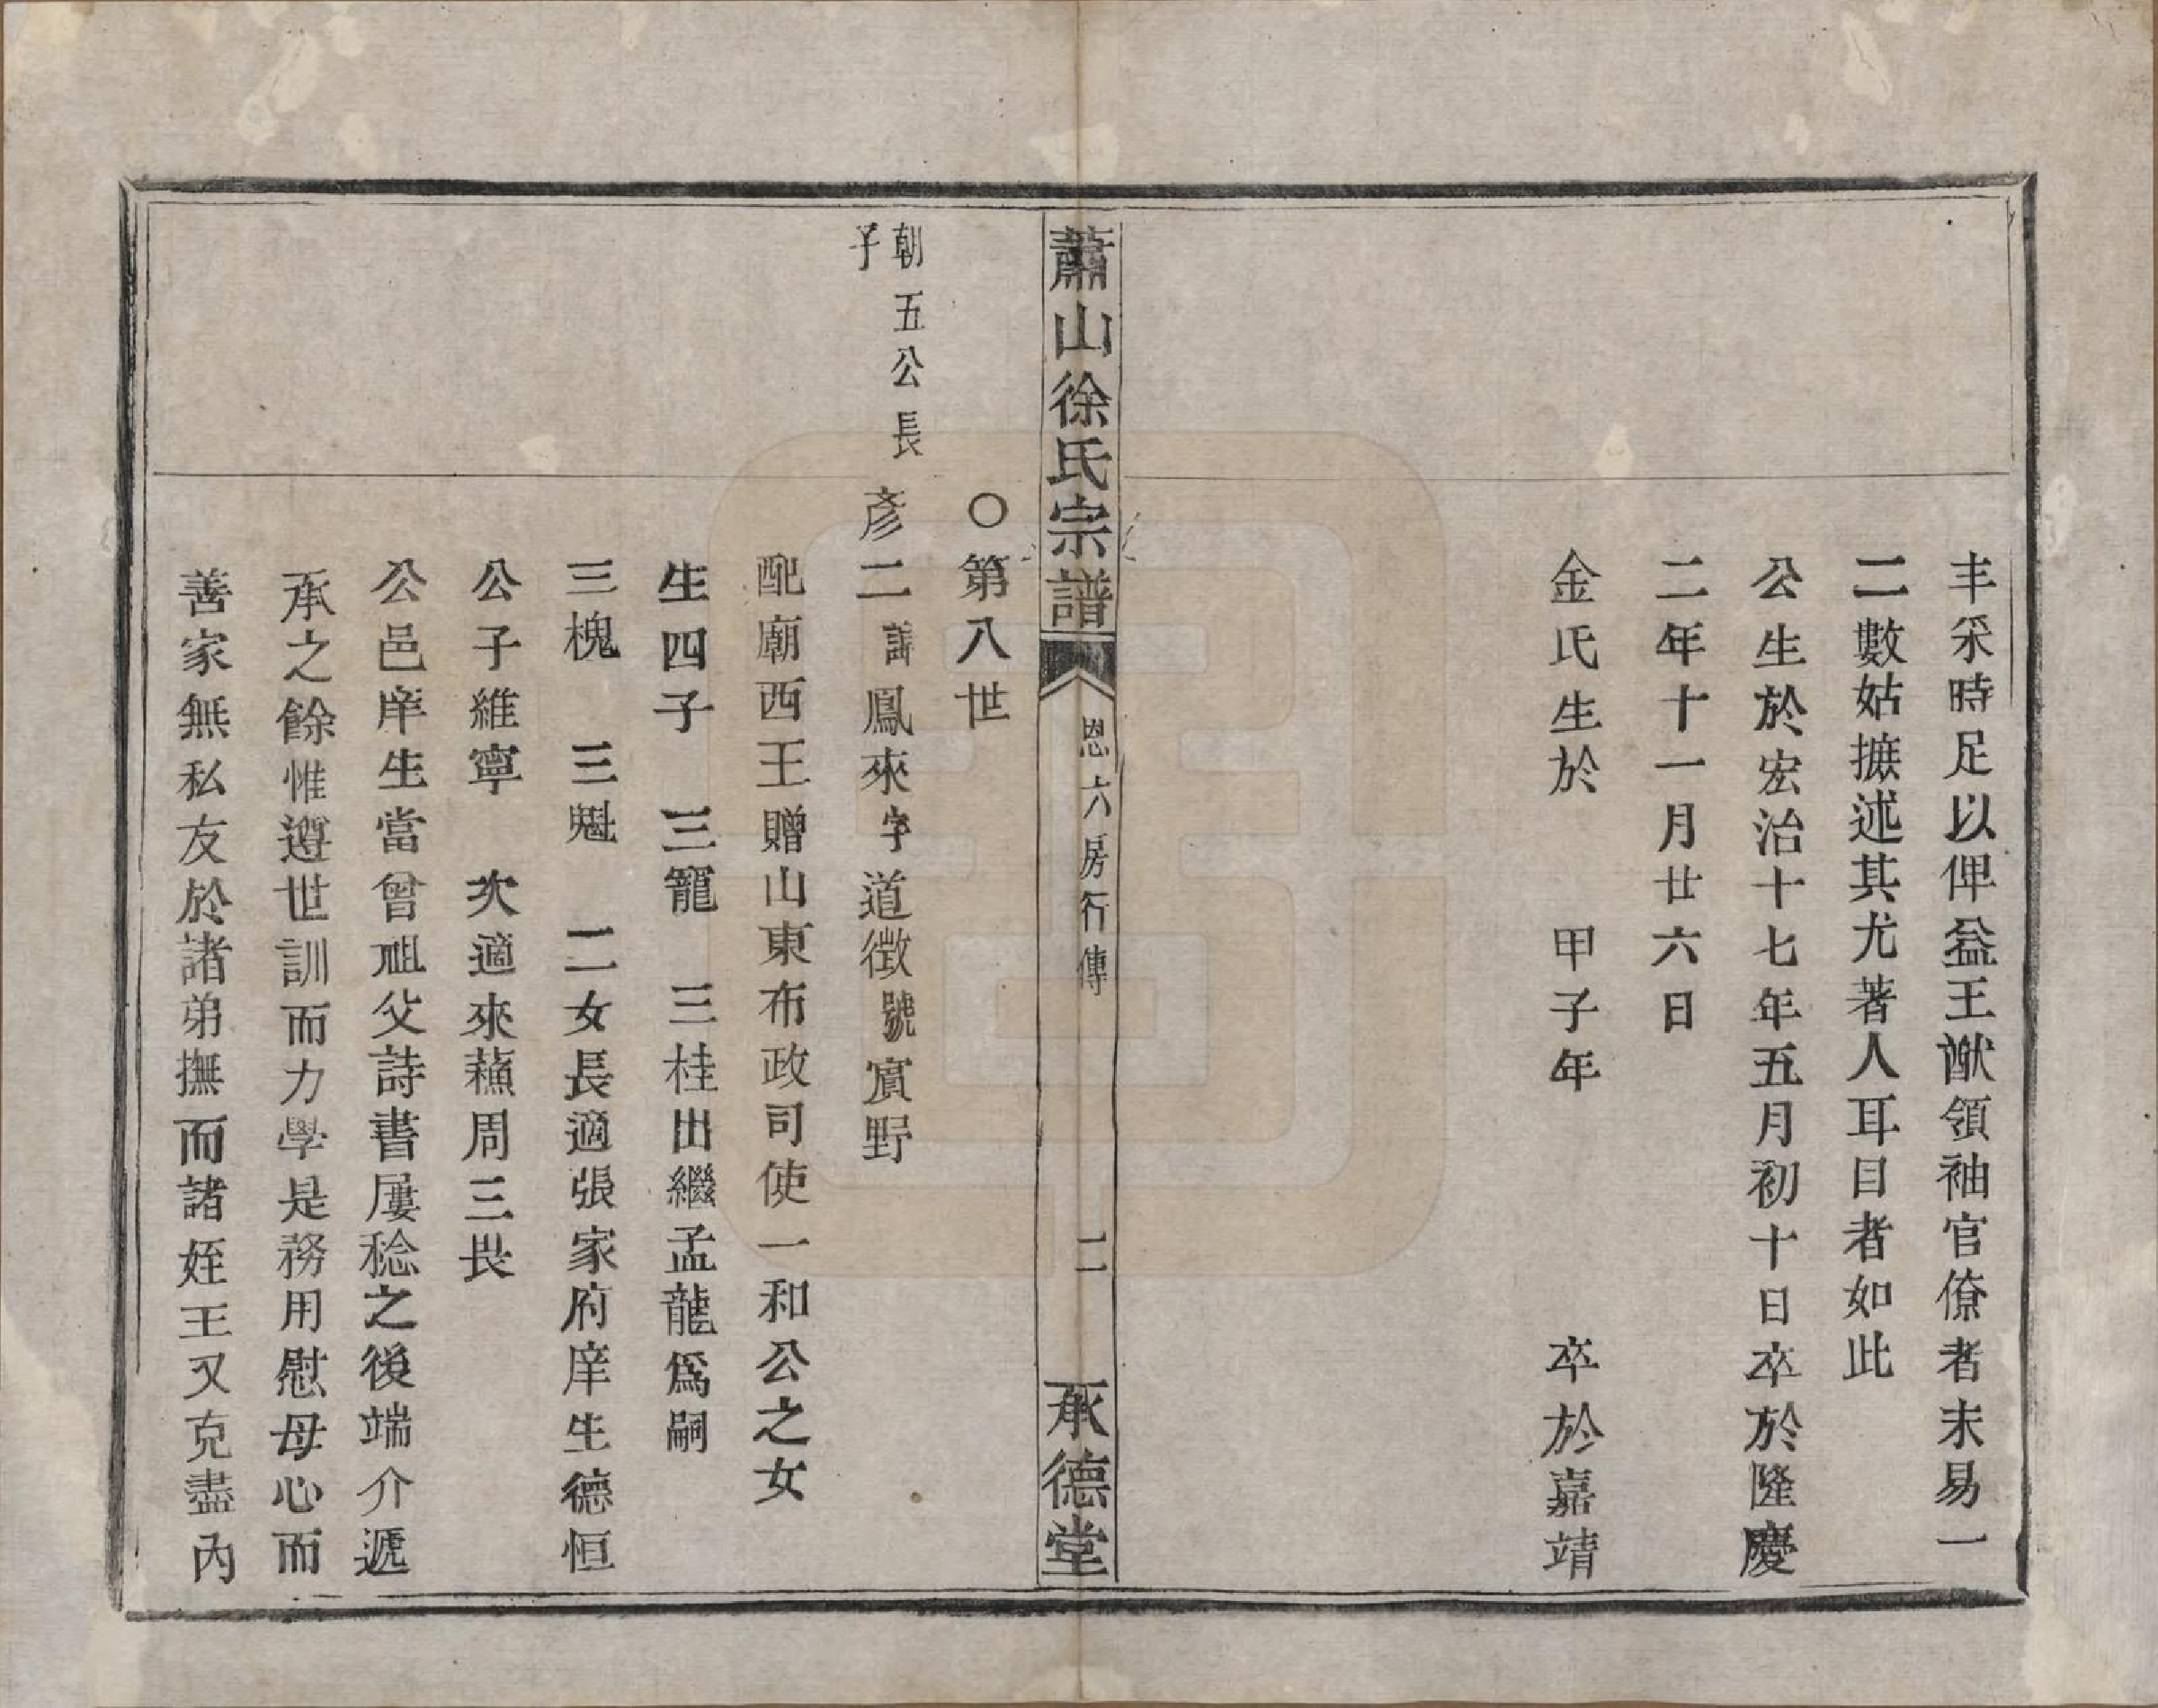 丰采時足以俾益王猷領袖官僚者未易一
二數姑摭述其尤著人耳目者如此
公生於宏治十七年五月初十日卒於隆慶
二年十一月廿六日
金氏生於　甲子年　卒於嘉靖
蕭山徐氏宗譜　恩六房行傳　二　承德堂
○第八世
朝五公長子
彥二諱鳳來字道徵號賓野
配廟西王贈山東布政司使一和公之女
生四子　三寵　三桂出繼孟龍爲嗣
三槐　三魁　二女長適張家府庠生德恒
公子維寧　次適來蘓周三畏
公邑庠生當曾祖父詩書屢稔之後端介遞
承之餘惟遵世訓而力學是務用慰母心而
善家無私友於諸弟撫而諸姪王又克盡內